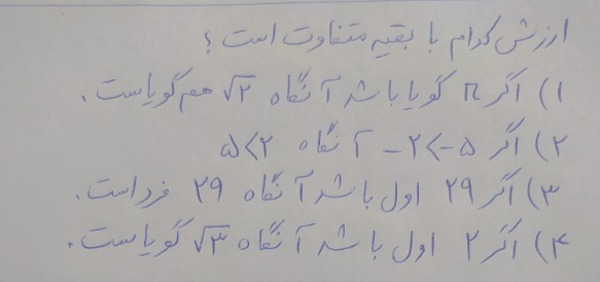 ارزش کدام با بقیه متفاوت است؟
۱) اگر π گویا باشد آنگاه √۲ هم گویاست.
۲) اگر ‎-۲<-۵‎ آنگاه ‎۵<۲‎
۳) اگر ۲۹ اول باشد آنگاه ۲۹ فرد است.
۴) اگر ۲ اول باشد آنگاه √۳ گویاست.